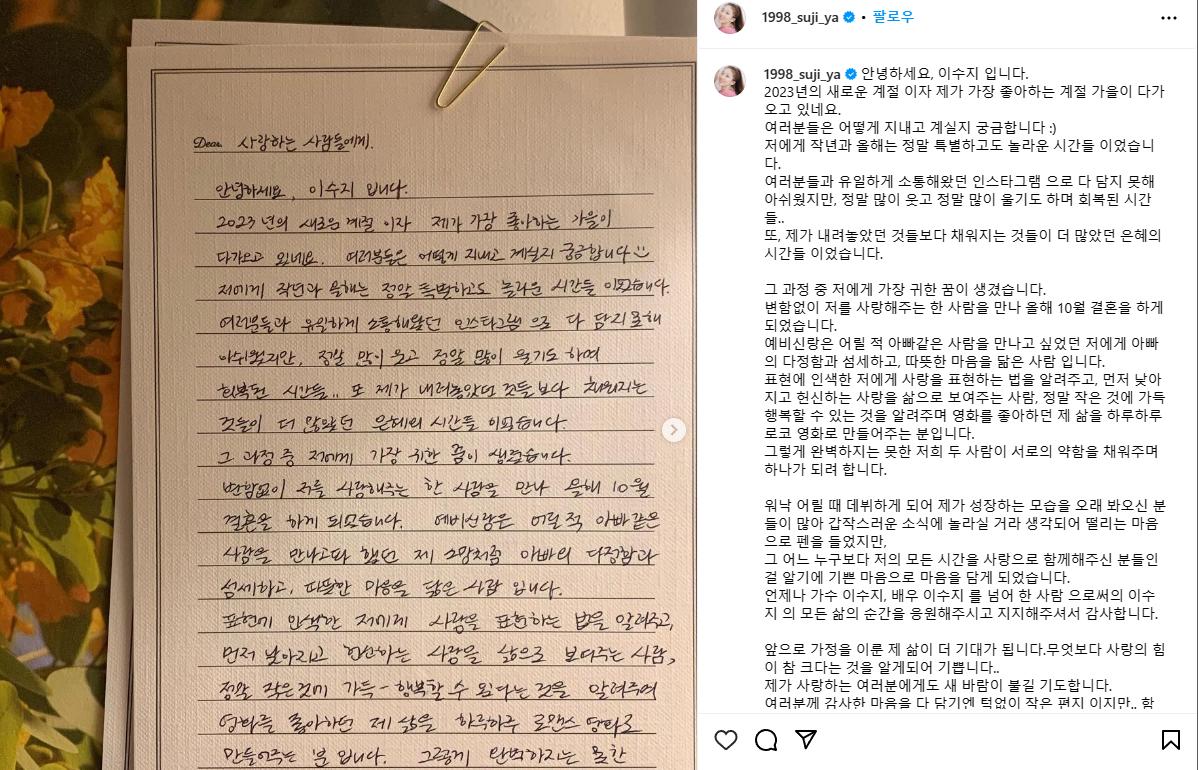 Dear. 사랑하는 사람들에게.
안녕하세요, 이수지 입니다.
2023년의 새로운 계절 이자 제가 가장 좋아하는 가을이
다가오고 있네요. 여러분들은 어떻게 지내고 계실지 궁금합니다
저에게 작년과 올해는 정말 특별하고도 놀라운 시간들 이었습니다.
여러분들과 유일하게 소통해왔던 인스타그램 으로 다 담지 못해
아쉬웠지만, 정말 많이 웃고 정말 많이 울기도 하며
회복된 시간들.. 또 제가 내려놓았던 것들보다 채워지는
것들이 더 많았던 은혜의 시간들 이었습니다.
그 과정 중 저에게 가장 귀한 꿈이 생겼습니다.
변함없이 저를 사랑해주는 한 사람을 만나 올해 10월
결혼을 하게 되었습니다. 예비신랑은 어릴 적 아빠같은
사람을 만나고파 했던 제 소망처럼 아빠의 다정함과
섬세하고, 따뜻한 마음을 닮은 사람 입니다.
표현에 인색한 저에게 사랑을 표현하는 법을 알려주고,
먼저 낮아지고 헌신하는 사랑을 삶으로 보여주는 사람,
정말 작은것에 가득 행복할 수 있다는 것을 알려주며
영화를 좋아하던 제 삶을 하루하루 로맨스 영화로
만들어주는 분 입니다. 그렇게 완벽하지는 못한
1998_suji_ya • 팔로우
1998_suji_ya 안녕하세요, 이수지 입니다.
2023년의 새로운 계절 이자 제가 가장 좋아하는 계절 가을이 다가
오고 있네요.
여러분들은 어떻게 지내고 계실지 궁금합니다 :)
저에게 작년과 올해는 정말 특별하고도 놀라운 시간들 이었습니
다.
여러분들과 유일하게 소통해왔던 인스타그램 으로 다 담지 못해
아쉬웠지만, 정말 많이 웃고 정말 많이 울기도 하며 회복된 시간
들..
또, 제가 내려놓았던 것들보다 채워지는 것들이 더 많았던 은혜의
시간들 이었습니다.
그 과정 중 저에게 가장 귀한 꿈이 생겼습니다.
변함없이 저를 사랑해주는 한 사람을 만나 올해 10월 결혼을 하게
되었습니다.
예비신랑은 어릴 적 아빠같은 사람을 만나고 싶었던 저에게 아빠
의 다정함과 섬세하고, 따뜻한 마음을 닮은 사람 입니다.
표현에 인색한 저에게 사랑을 표현하는 법을 알려주고, 먼저 낮아
지고 헌신하는 사랑을 삶으로 보여주는 사람, 정말 작은 것에 가득
행복할 수 있는 것을 알려주며 영화를 좋아하던 제 삶을 하루하루
로코 영화로 만들어주는 분입니다.
그렇게 완벽하지는 못한 저희 두 사람이 서로의 약함을 채워주며
하나가 되려 합니다.
워낙 어릴 때 데뷔하게 되어 제가 성장하는 모습을 오래 봐오신 분
들이 많아 갑작스러운 소식에 놀라실 거라 생각되어 떨리는 마음
으로 펜을 들었지만,
그 어느 누구보다 저의 모든 시간을 사랑으로 함께해주신 분들인
걸 알기에 기쁜 마음으로 마음을 담게 되었습니다.
언제나 가수 이수지, 배우 이수지 를 넘어 한 사람 으로써의 이수
지 의 모든 삶의 순간을 응원해주시고 지지해주셔서 감사합니다.
앞으로 가정을 이룬 제 삶이 더 기대가 됩니다.무엇보다 사랑의 힘
이 참 크다는 것을 알게되어 기쁩니다..
제가 사랑하는 여러분에게도 새 바람이 불길 기도합니다.
여러분께 감사한 마음을 다 담기엔 턱없이 작은 편지 이지만.. 함